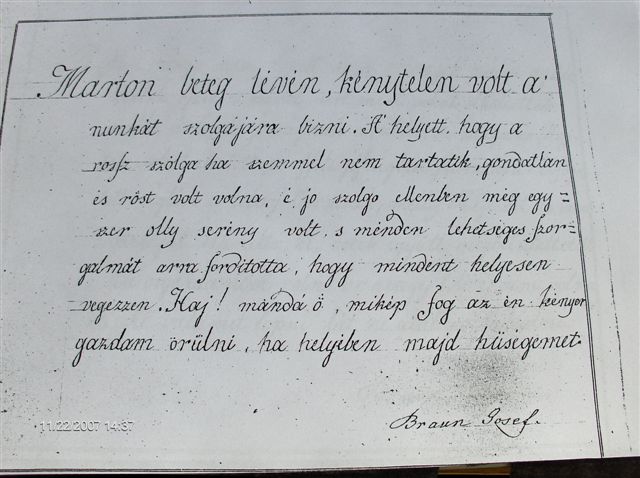 Marton beteg lévén, kénytelen volt a'
nunkát szolgájára bizni. A' helyett, hogy a
rossz szolga ha szemmel nem tartatik, gondatlan
és röst volt volna, é jo szolgo ellenben még egy=
szer olly serény volt, s ménden lehetséges szor=
galmát arra forditotta, hogy mindent helyesen
vegezzen. Haj! mandá ő, mikép fog az én kényor
gazdam örülni, ha helyiben majd hüségemet.
Braun Josef.
11.22.2007 14:37